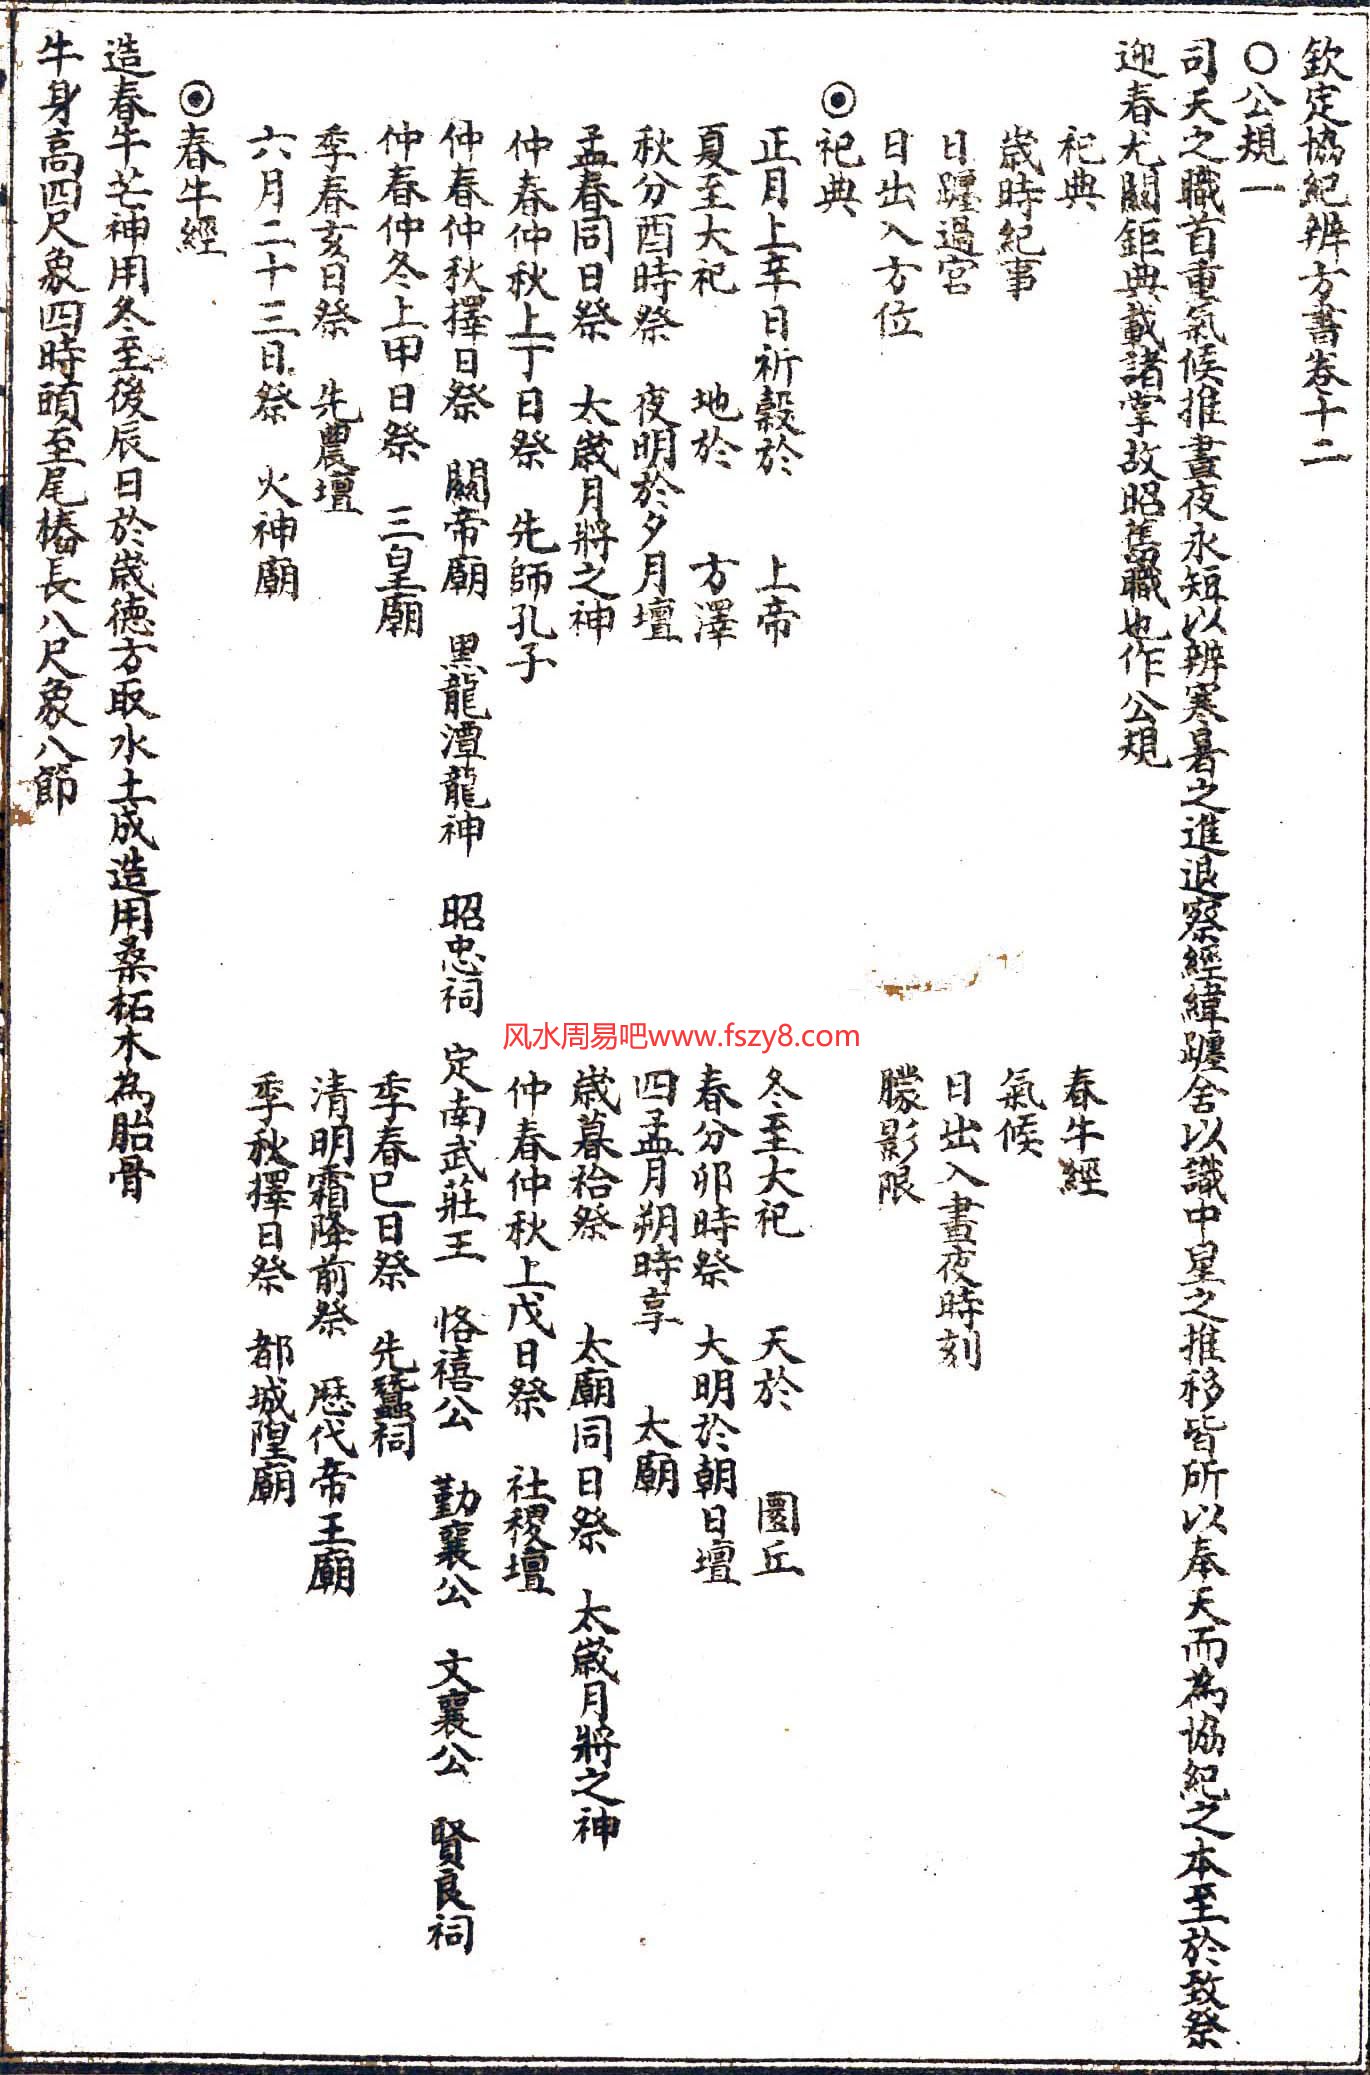 欽定協紀辨方書卷十二
〇公規一
司天之職首重氣候推晝夜永短以辨寒暑之進退察經緯躔舍以識中星之推移皆所以奉天而為協紀之本至於致祭
迎春尤關鉅典載諸掌故昭舊職也作公規
祀典　春牛經
歲時紀事　氣候
日躔過宮　日出入晝夜時刻
日出入方位　朦影限
◉祀典
正月上辛日祈穀於　上帝　冬至大祀　天於　圜丘
夏至大祀　地於　方澤　春分卯時祭　大明於朝日壇
秋分酉時祭　夜明於夕月壇　四孟月朔時享　太廟
孟春同日祭　太歲月將之神　歲暮祫祭　太廟同日祭　太歲月將之神
仲春仲秋上丁日祭　先師孔子　仲春仲秋上戊日祭　社稷壇
仲春仲秋擇日祭　關帝廟　黑龍潭龍神　昭忠祠　定南武莊王　恪禧公　勤襄公　文襄公　賢良祠
仲春仲冬上甲日祭　三皇廟　季春巳日祭　先蠶祠
季春亥日祭　先農壇　清明霜降前祭　歷代帝王廟
六月二十三日祭　火神廟　季秋擇日祭　都城隍廟
◉春牛經
造春牛芒神用冬至後辰日於歲德方取水土成造用桑柘木為胎骨
牛身高四尺象四時頭至尾樁長八尺象八節
风水周易吧www.fszy8.com